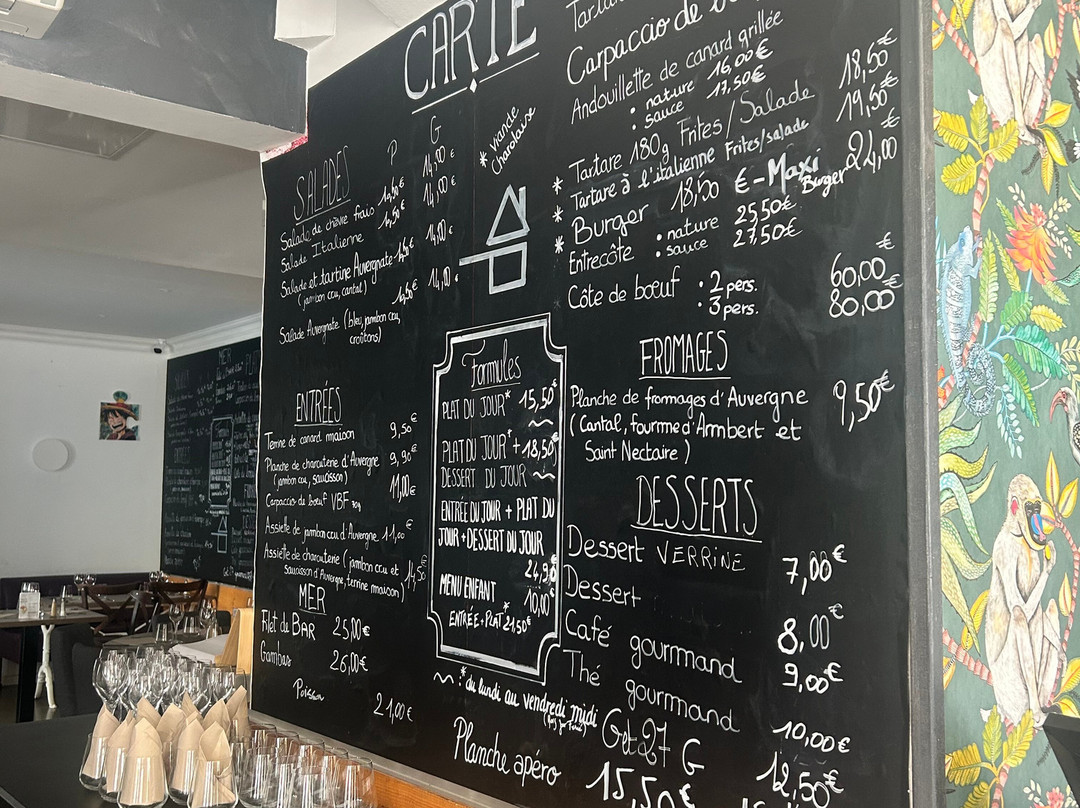 CARTE
SALADES
P
G
Salade de chèvre frais
14,00 €
Salade Italienne
14,00 €
Salade et tartine Auvergnate
14,00 €
(jambon cru, cantal)
Salade Auvergnate (bleu, jambon cru,
croûtons)
14,00 €
* viande
Charolaise
ENTRÉES
Terrine de canard maison 9,50€
Planche de charcuterie d'Auvergne 9,90€
(jambon cru, saucisson)
Carpaccio de bœuf VBF 11,00€
Assiette de jambon cru d'Auvergne 11,00€
Assiette de charcuterie (jambon cru et
saucisson d'Auvergne, terrine maison) 14,50€
MER
Filet de BAR 25,00€
Gambas 26,00€
Poisson 21,00€
Formules
PLAT DU JOUR* 15,50€
PLAT DU JOUR* + 18,50€
DESSERT DU JOUR
ENTRÉE DU JOUR + PLAT DU
JOUR + DESSERT DU JOUR
24,90
MENU ENFANT 10,00€
ENTRÉE + PLAT* 21,50€
* du lundi au vendredi midi
Planche apéro 15,50€
Carpaccio de
Andouillette de canard grillée
: nature 16,00€
sauce 17,50€
* Tartare 180g Frites/Salade 18,50€
* Tartare à l'italienne Frites/salade 19,50€
* Burger 18,50 € - Maxi Burger 24,00 €
* Entrecôte : nature 25,50€
sauce 27,50€
Côte de bœuf : 2 pers. 60,00 €
: 3 pers. 80,00€
FROMAGES
Planche de fromages d'Auvergne 9,50€
(Cantal, fourme d'Ambert et
Saint Nectaire)
DESSERTS
Dessert VERRINE 7,00€
Dessert 8,00€
Café gourmand 9,00€
Thé gourmand 10,00€
Get 27 G 12,50€